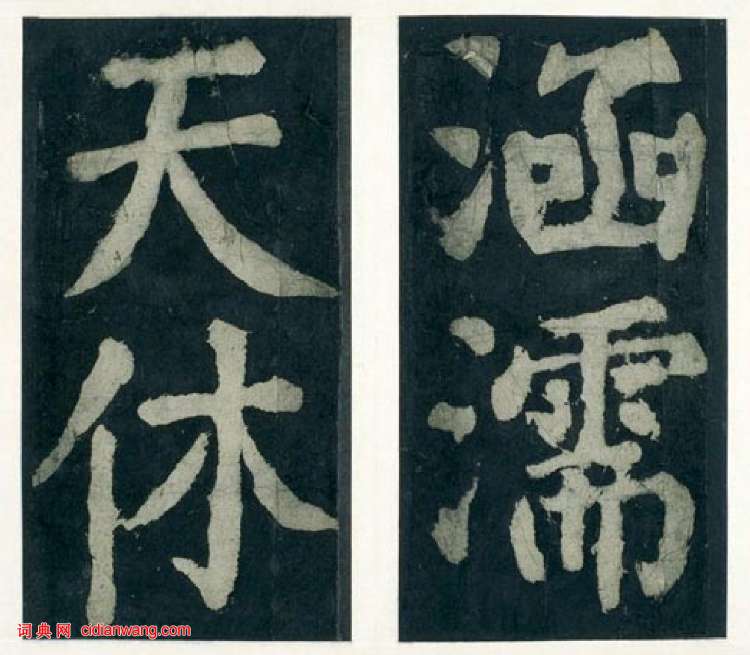 涵濡
天休
词典网 cidianwang.com